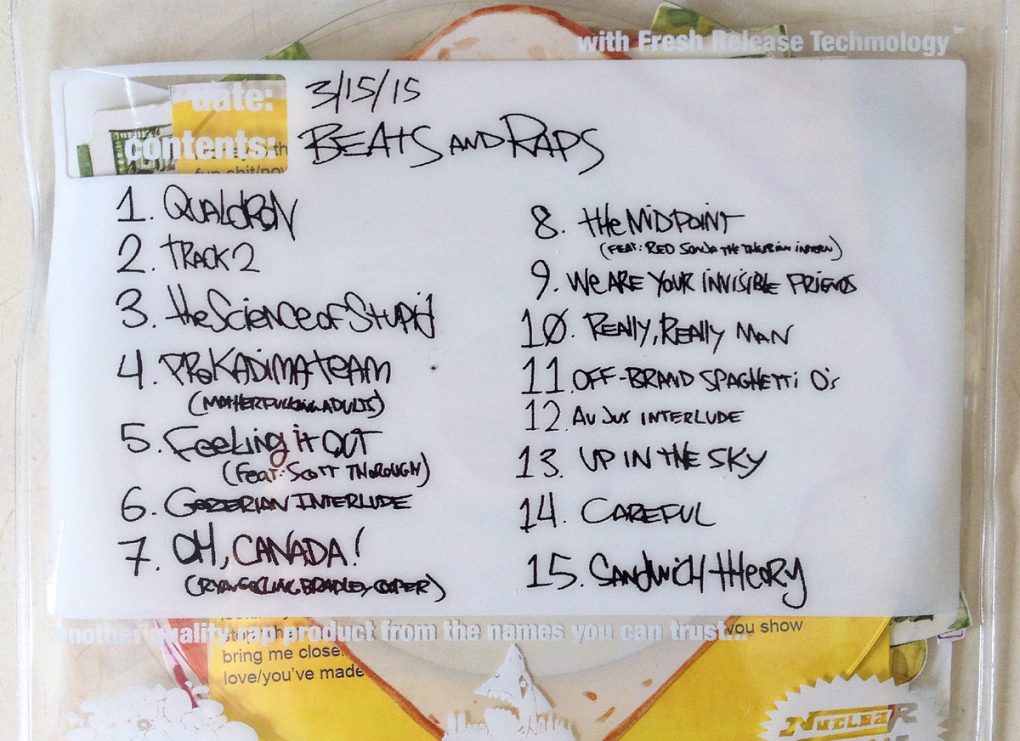 with Fresh Release Technology
date: 3/15/15
contents: BEATS AND RAPS
1. QUALDRON
2. TRACK 2
3. the Science of Stupid
4. PROKADIMA TEAM
(MOTHERFUCKING ADULTS)
5. Feeling it OUT
(FEAT: SCOTT THOROUGH)
6. GOZERIAN INTERLUDE
7. OH, CANADA!
(RYAN GOSLING, BRADLEY COOPER)
8. the MIDPOINT
(FEAT: RED SONJA THE INTERN)
9. WE ARE YOUR INVISIBLE FRIENDS
10. REALLY, REALLY MAN
11. OFF-BRAND SPAGHETTI O's
12. AU JUS INTERLUDE
13. UP IN THE SKY
14. CAREFUL
15. SANDWICH THEORY
another quality rap product from the names you can trust...
you show
bring me close.
love/you've made
NUCLEAR